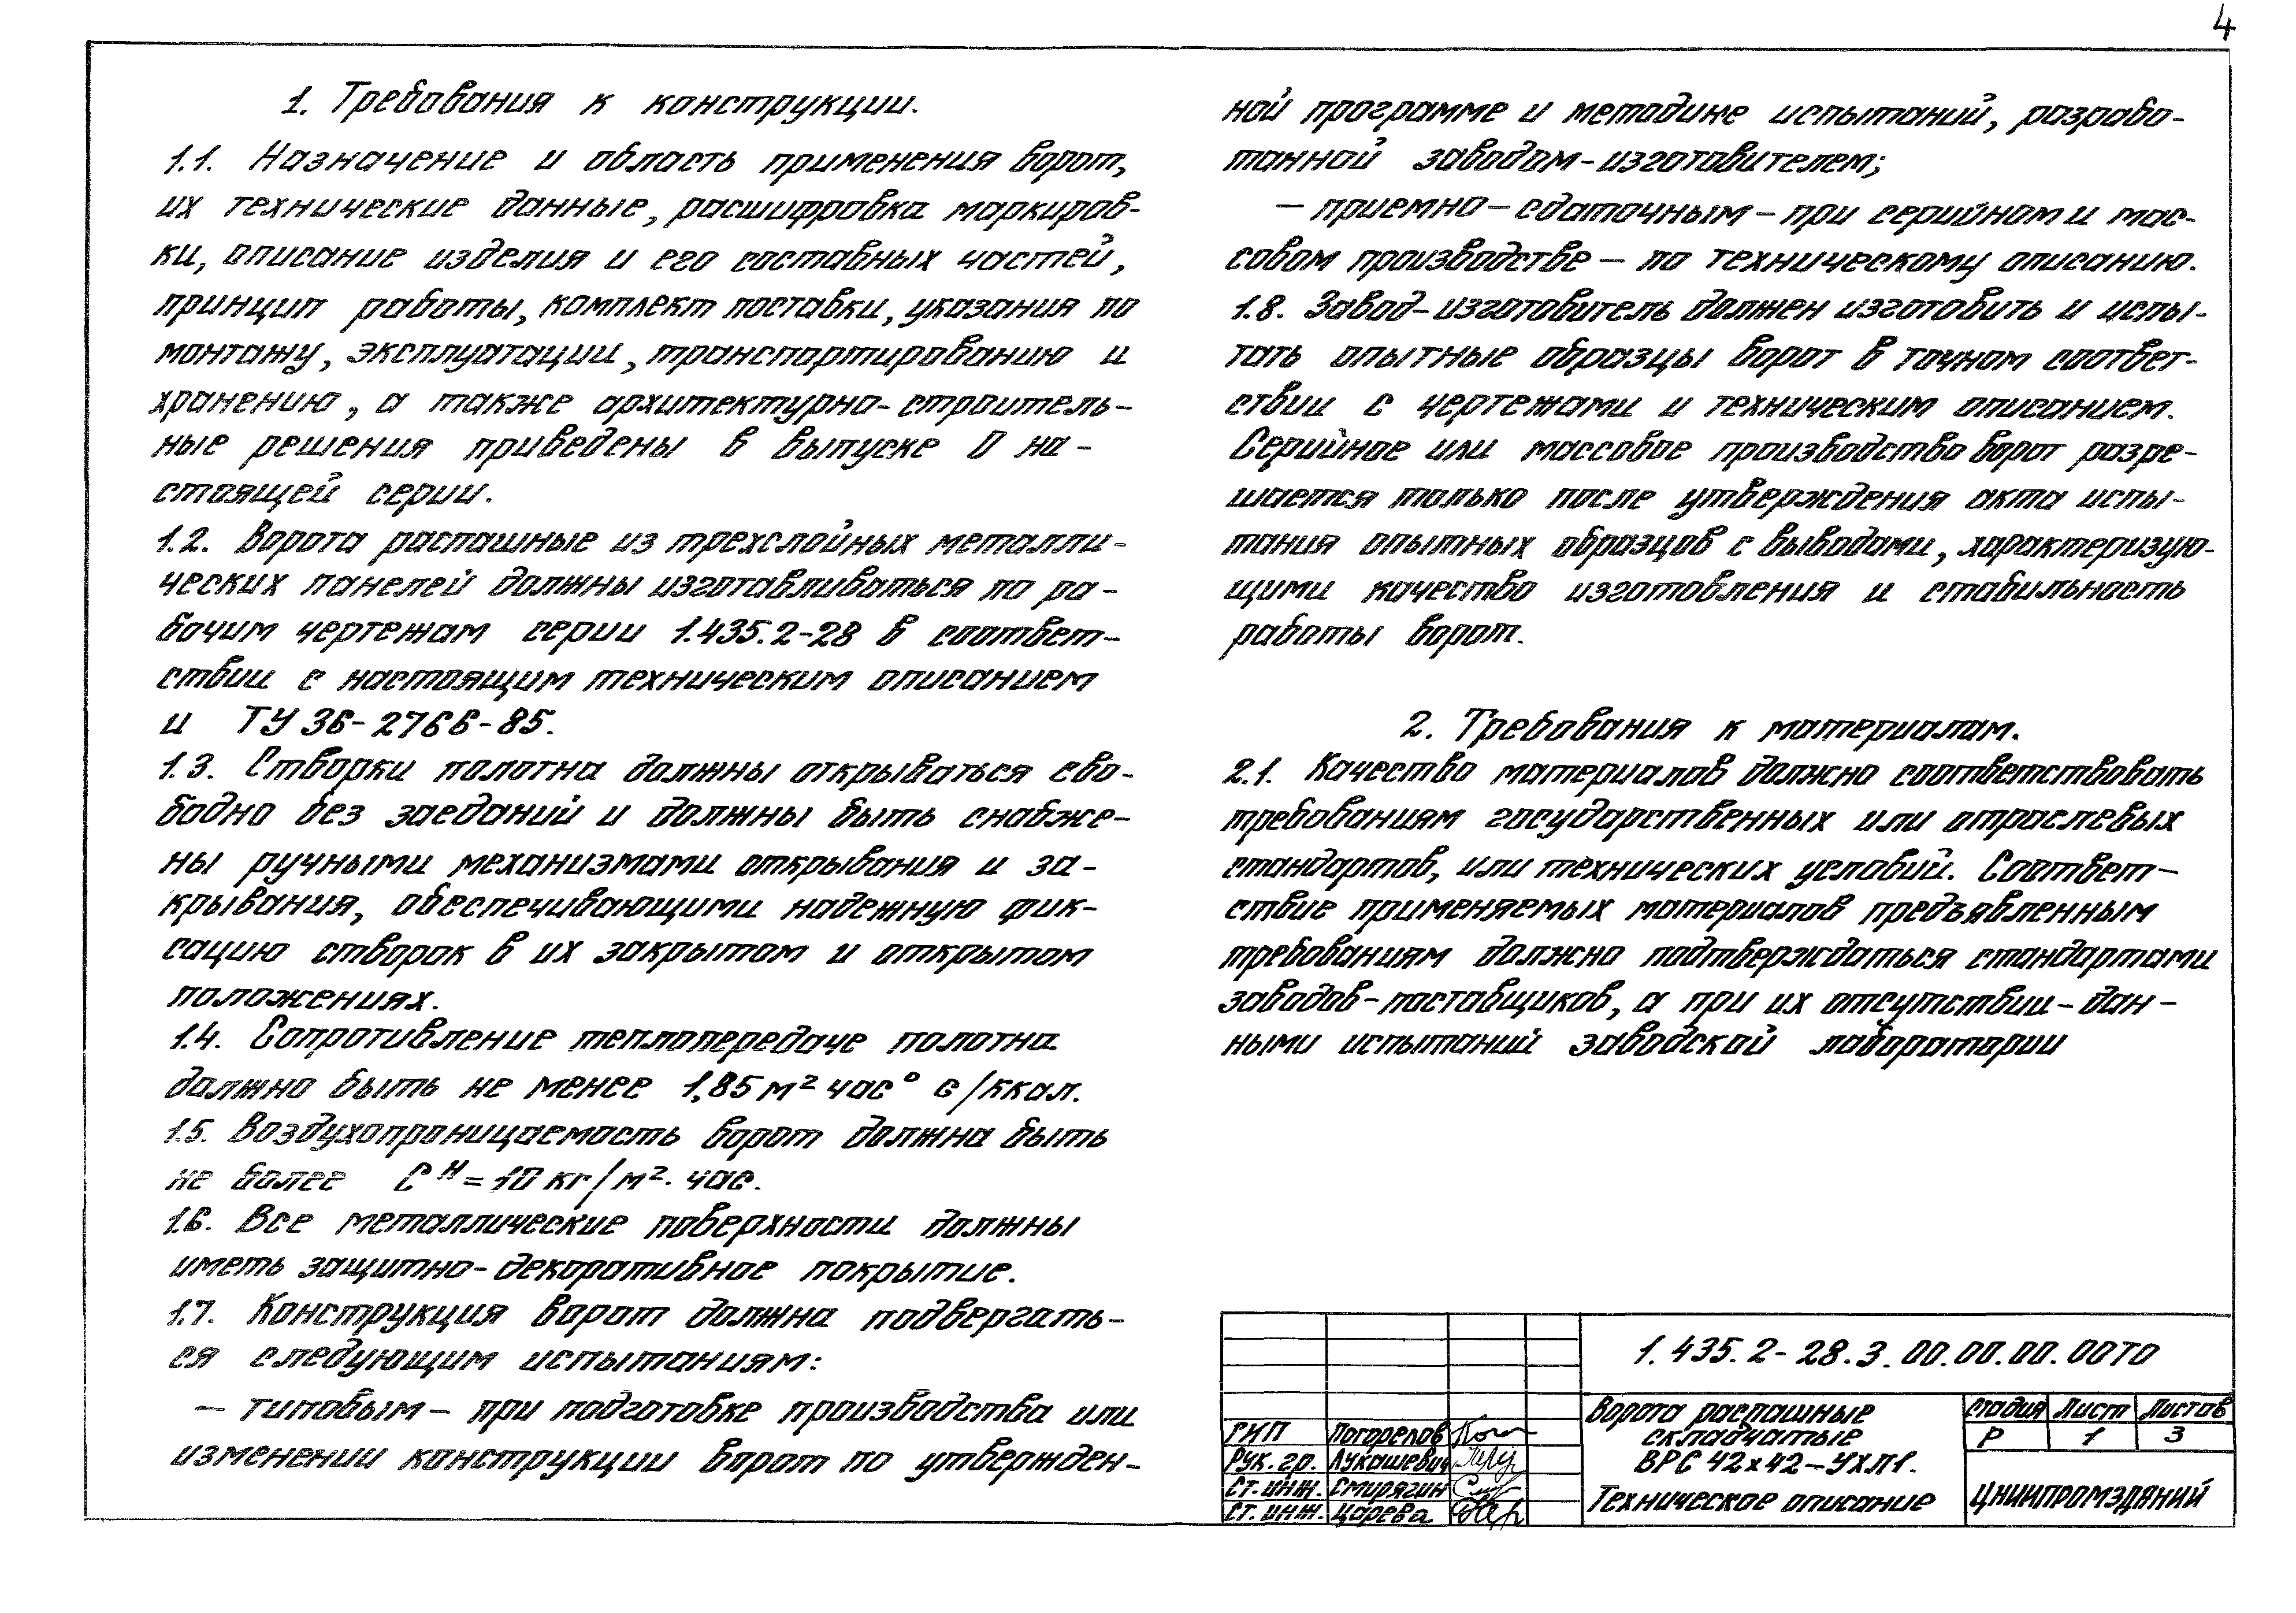 4
1. Требования к конструкции.
1.1. Назначение и область применения ворот,
их технические данные, расшифровка маркиров-
ки, описание изделия и его составных частей,
принцип работы, комплект поставки, указания по
монтажу, эксплуатации, транспортированию и
хранению, а также архитектурно-строитель-
ные решения приведены в выпуске 0 на-
стоящей серии.
1.2. Ворота распашные из трехслойных металли-
ческих панелей должны изготавливаться по ра-
бочим чертежам серии 1.435.2-28 в соответ-
ствии с настоящим техническим описанием
и ТУ 36-2766-85.
1.3. Створки полотна должны открываться сво-
бодно без заеданий и должны быть снабже-
ны ручными механизмами открывания и за-
крывания, обеспечивающими надежную фик-
сацию створок в их закрытом и открытом
положениях.
1.4. Сопротивление теплопередаче полотна
должно быть не менее 1,85 м² час° с/ккал.
1.5. Воздухопроницаемость ворот должна быть
не более Сᴴ = 10 кг/м². час.
1.6. Все металлические поверхности должны
иметь защитно-декоративное покрытие.
1.7. Конструкция ворот должна подвергать-
ся следующим испытаниям:
— типовым — при подготовке производства или
изменении конструкции ворот по утвержден-
ной программе и методике испытаний, разрабо-
танной заводом-изготовителем;
— приемно-сдаточным — при серийном и мас-
совом производстве — по техническому описанию.
1.8. Завод-изготовитель должен изготовить и испы-
тать опытные образцы ворот в точном соответ-
ствии с чертежами и техническим описанием.
Серийное или массовое производство ворот разре-
шается только после утверждения акта испы-
тания опытных образцов с выводами, характеризую-
щими качество изготовления и стабильность
работы ворот.
2. Требования к материалам.
2.1. Качество материалов должно соответствовать
требованиям государственных или отраслевых
стандартов, или технических условий. Соответ-
ствие применяемых материалов предъявленным
требованиям должно подтверждаться стандартами
заводов-поставщиков, а при их отсутствии — дан-
ными испытаний заводской лаборатории
1.435.2-28.3.00.00.00.00ТО
Ворота распашные
складчатые
ВРС 42х42-УХЛ1.
Техническое описание
Стадия Лист Листов
Р 1 3
ЦНИИПРОМЗДАНИЙ
ГИП Погорелов
Рук. гр. Лукашевич
Ст. инж. Смирягин
Ст. инж. Царева